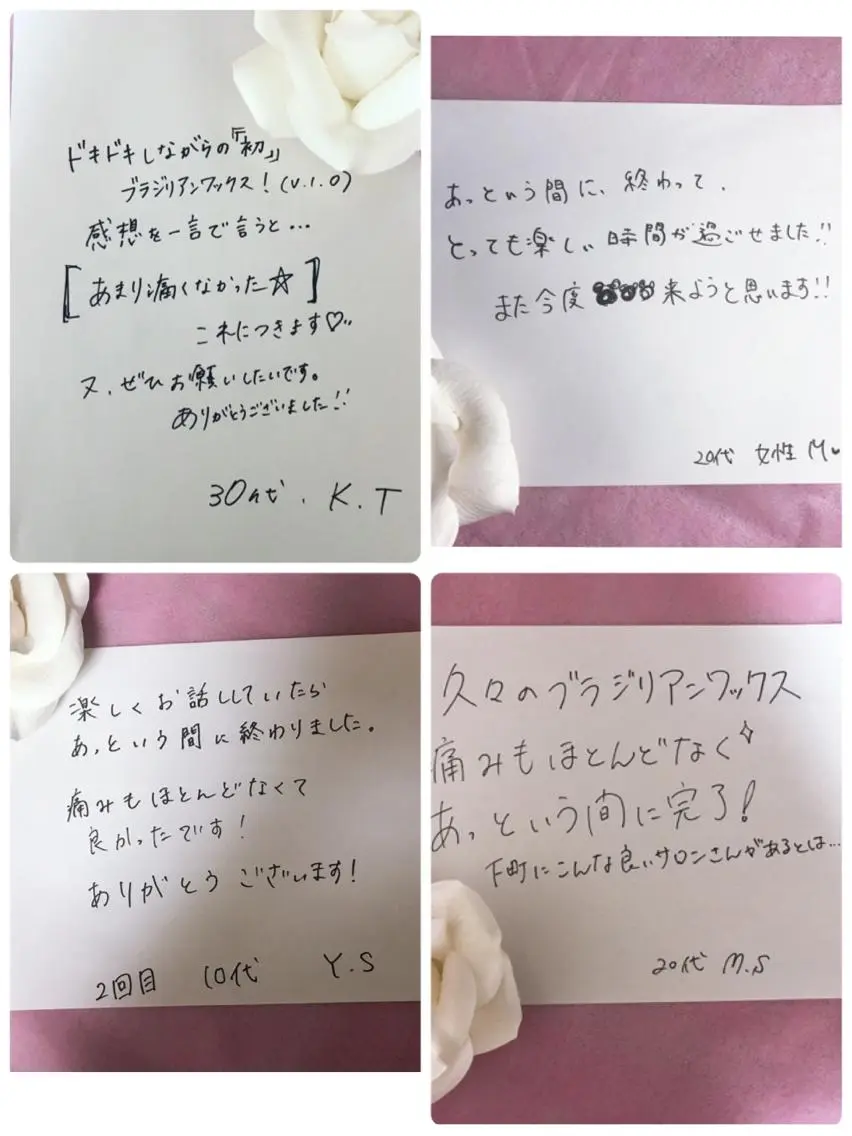 ドキドキしながらの『初』
ブラジリアンワックス！(v.1.0)
感想を一言で言うと…
[あまり痛くなかった☆]
これにつきます♡‥
又、ぜひお願いしたいです。
ありがとうございました!!
30代. K.T
あっという間に、終わって、
とっても楽しい時間が過ごせました!!
また今度 来ようと思います!!
20代 女性 M♥
楽しくお話ししていたら
あっという間に終わりました。
痛みもほとんどなくて
良かったです！
ありがとうございます！
2回目 10代 Y.S
久々のブラジリアンワックス
痛みもほとんどなく✧
あっという間に完了！
下町にこんな良いサロンさんがあるとは…
20代 M.S